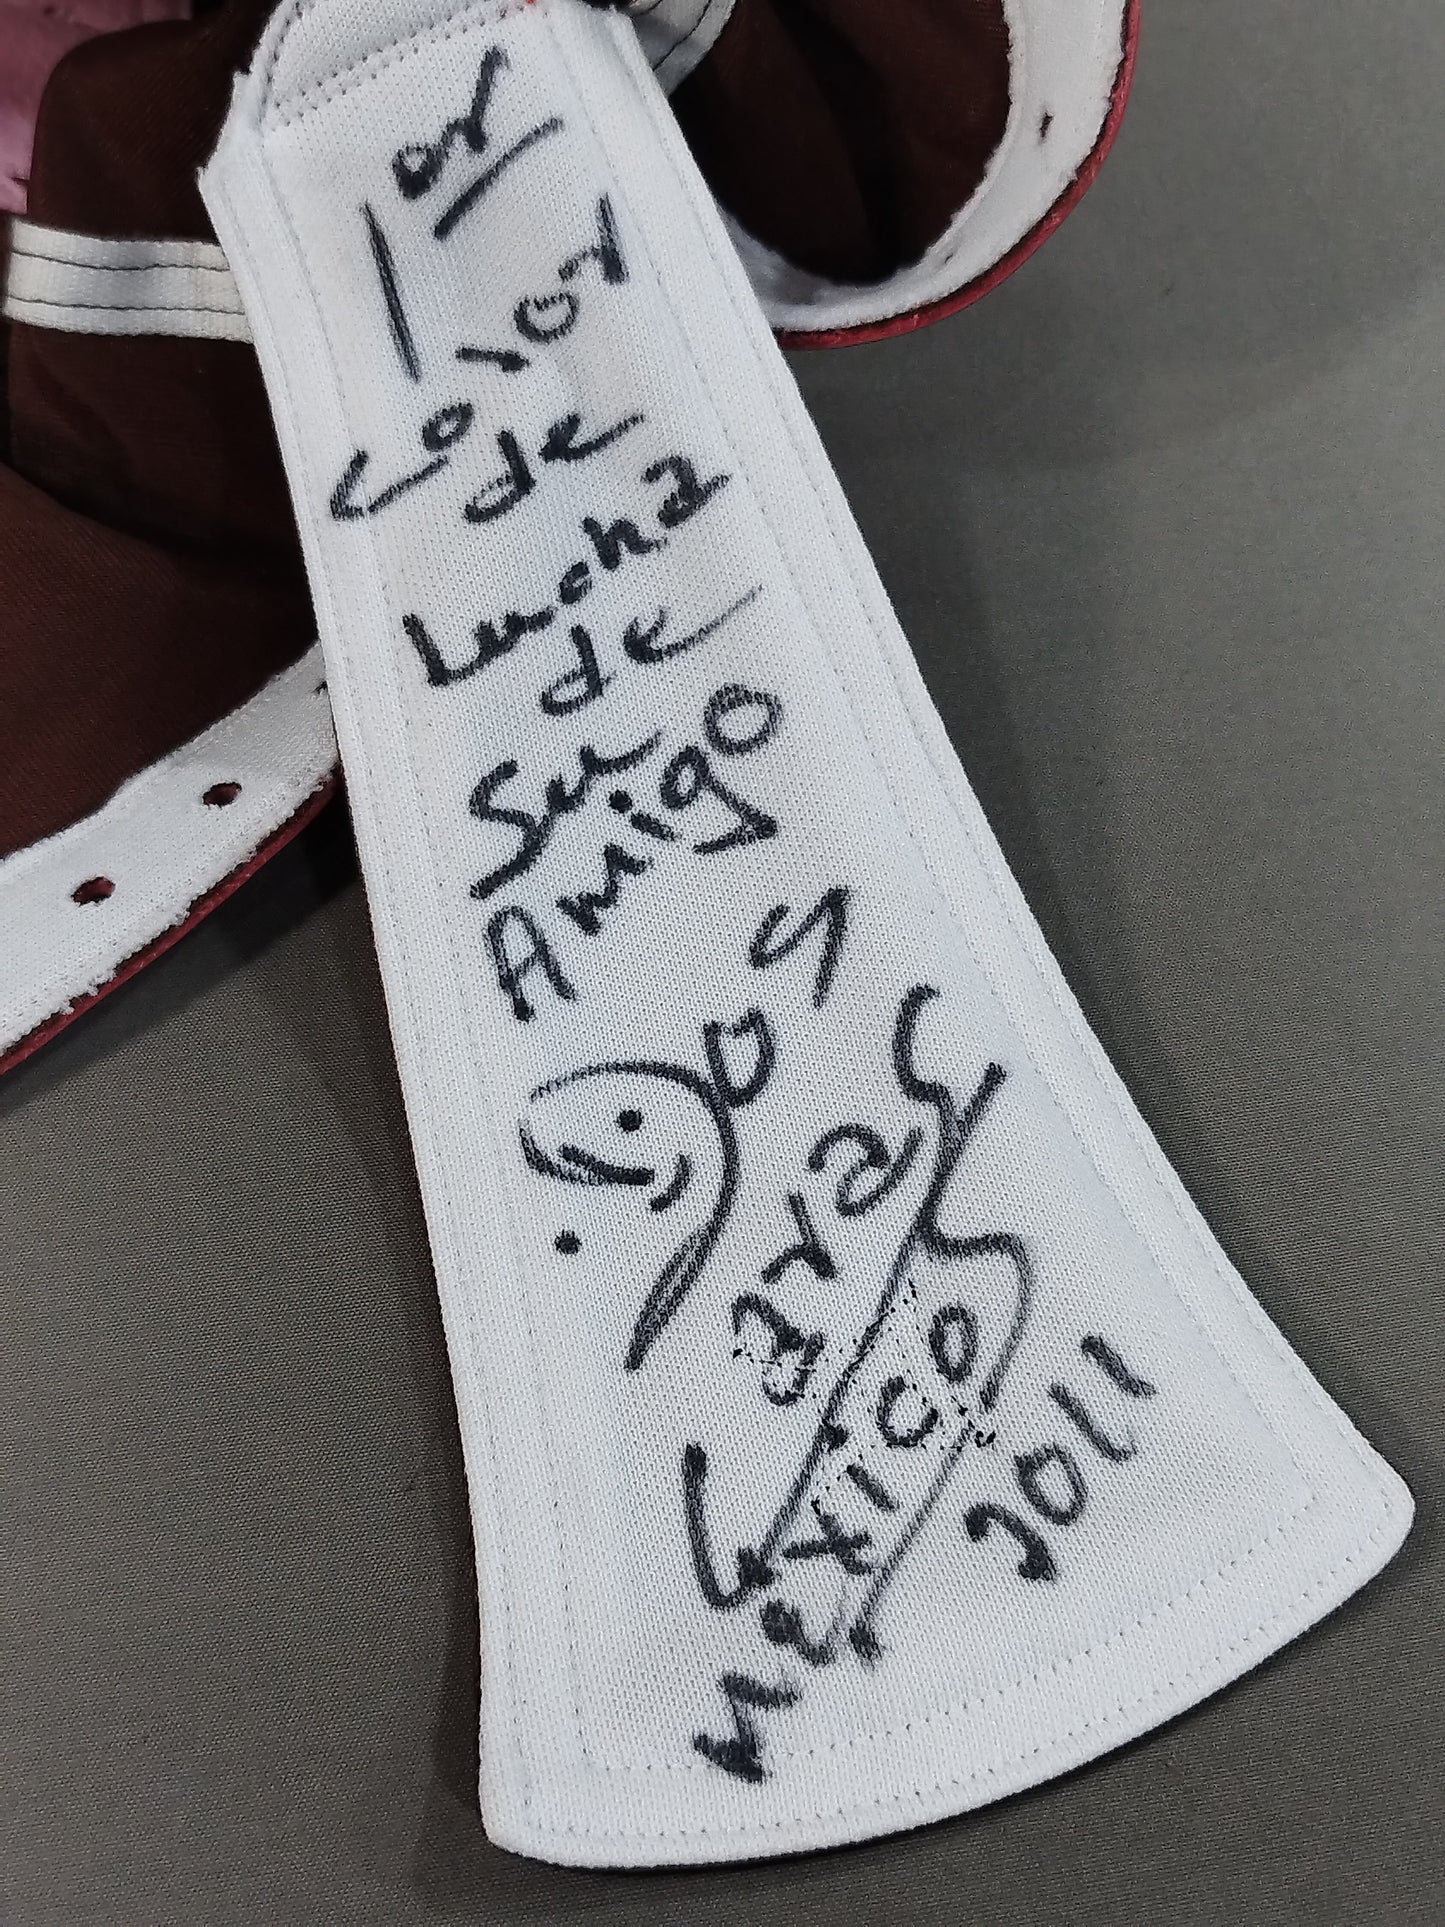 1 or
de
Lucha
de
Su
Amigo
Dos
Caras
Mexico
2011